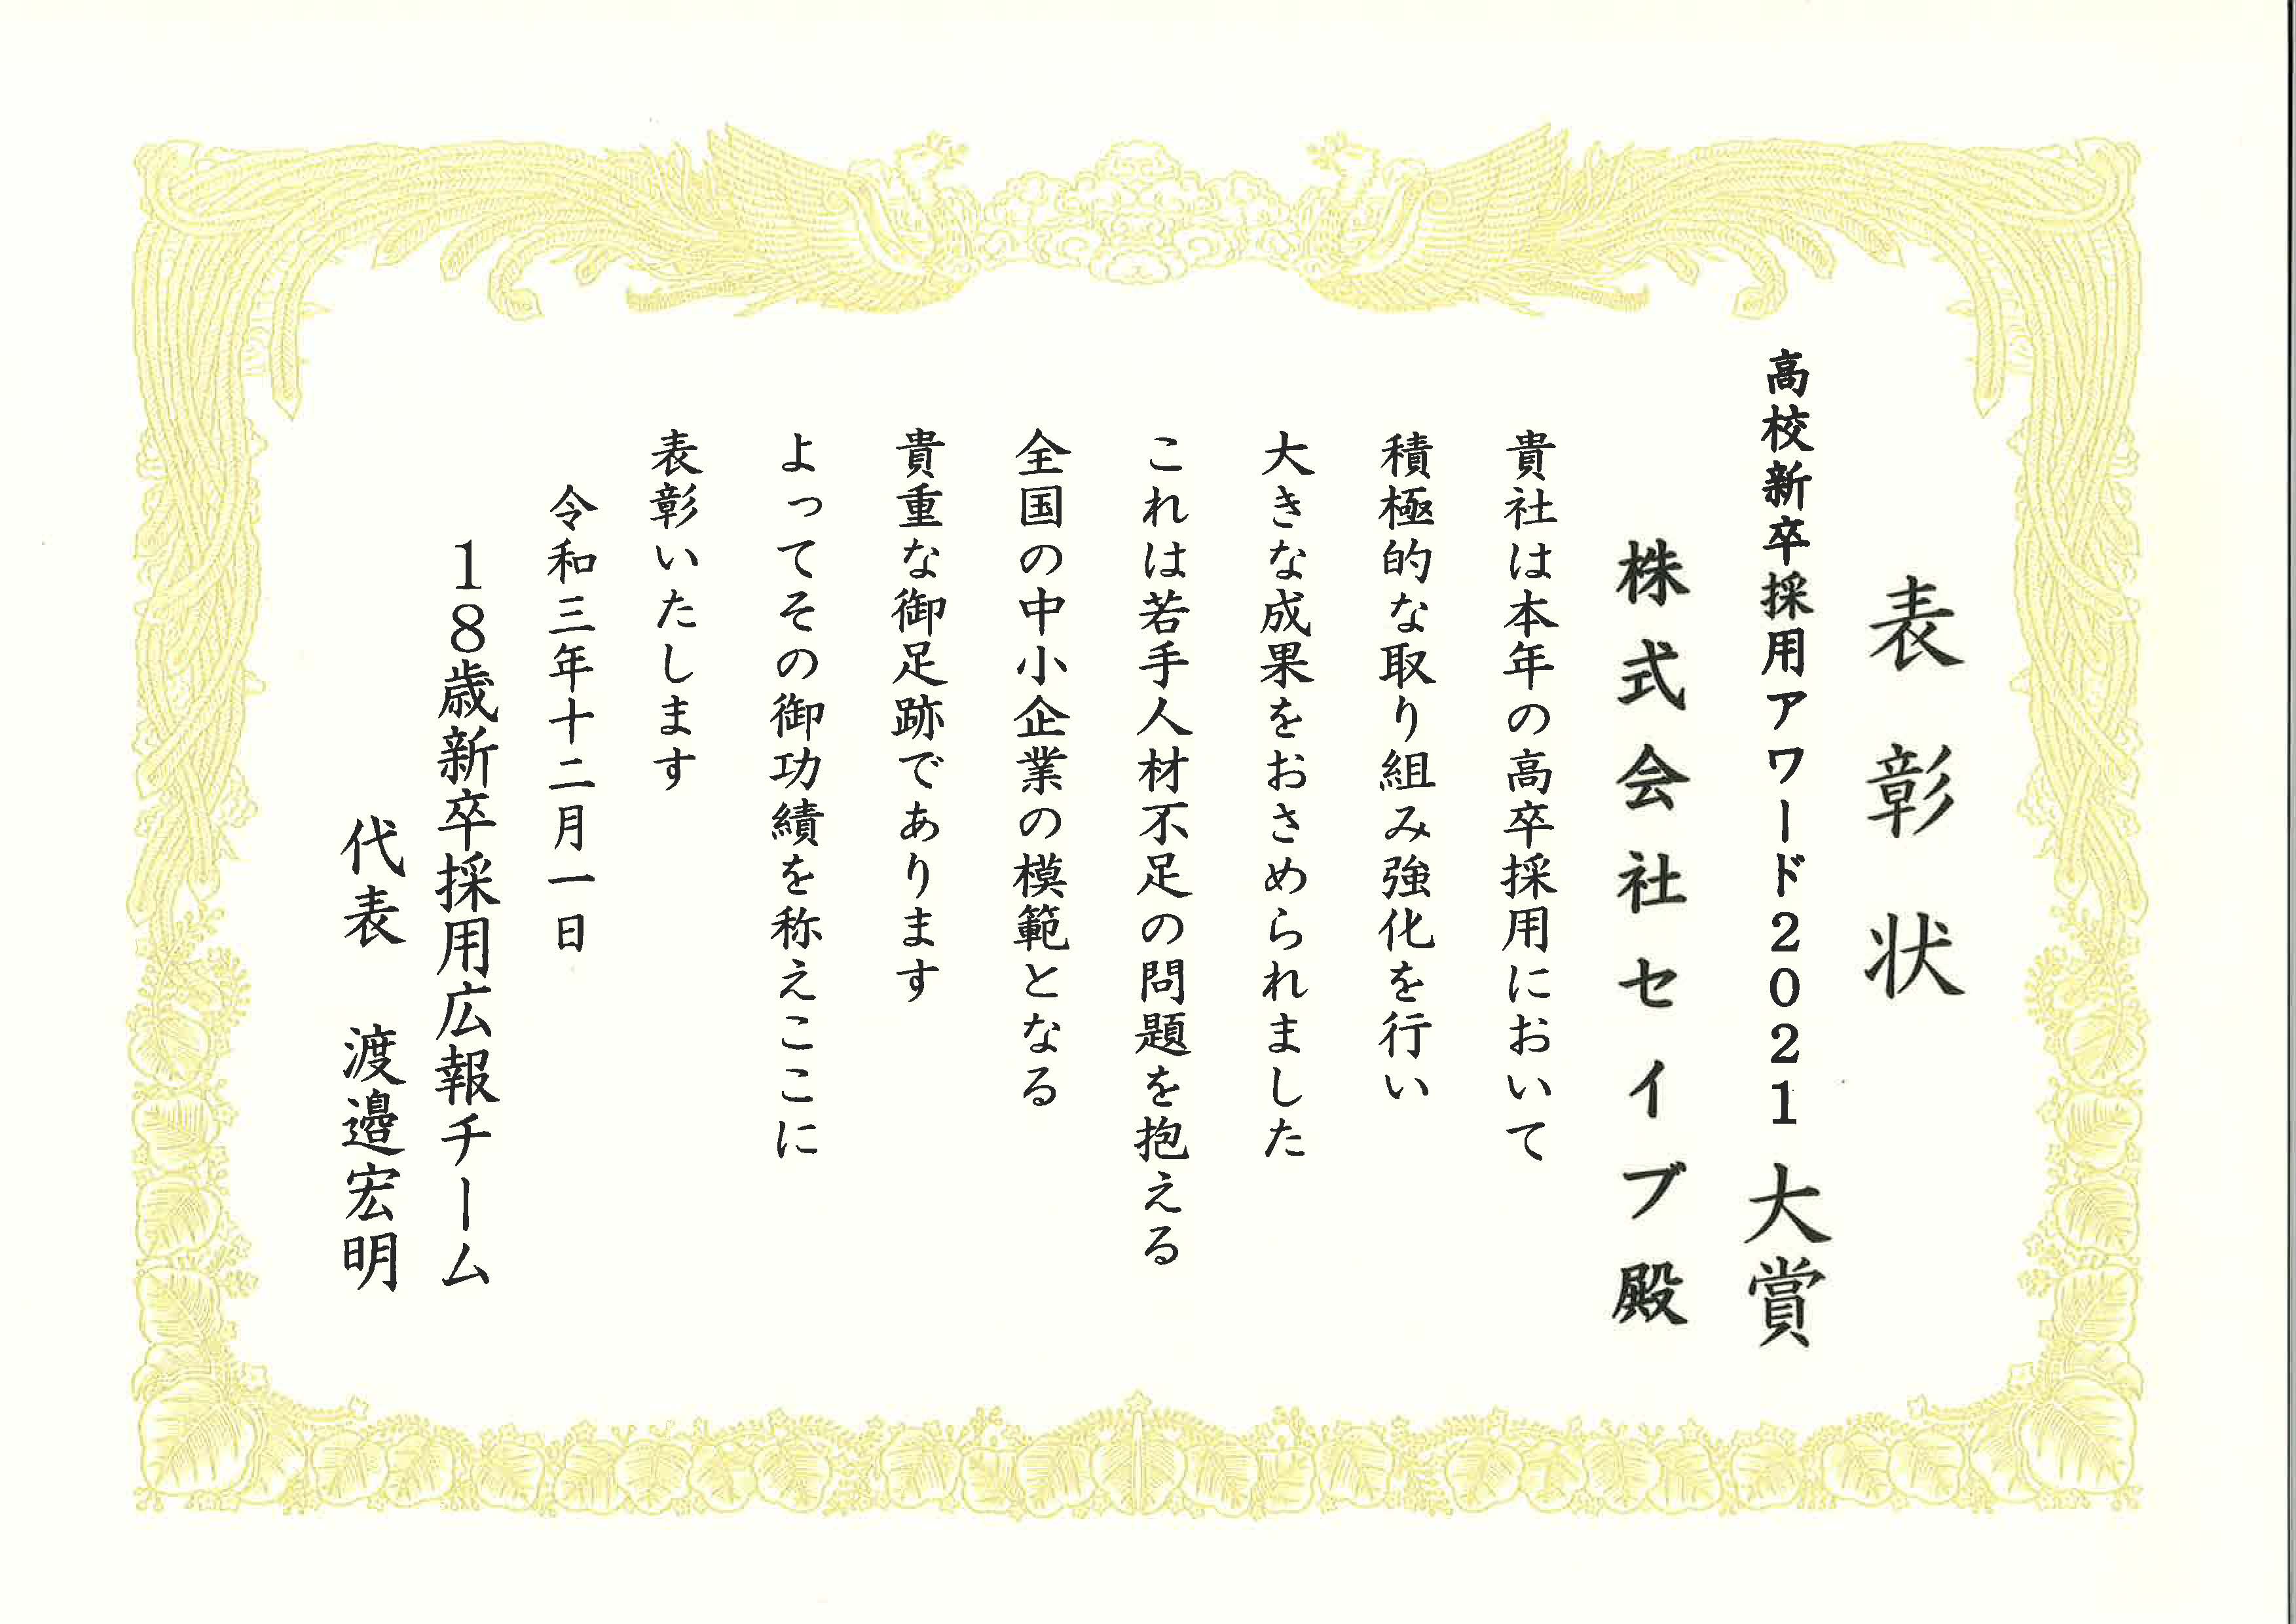 表彰状
高校新卒採用アワード2021 大賞
株式会社セイブ殿
貴社は本年の高卒採用において
積極的な取り組み強化を行い
大きな成果をおさめられました
これは若手人材不足の問題を抱える
全国の中小企業の模範となる
貴重な御足跡であります
よってその御功績を称えここに
表彰いたします
令和三年十二月一日
18歳新卒採用広報チーム
代表 渡邉宏明